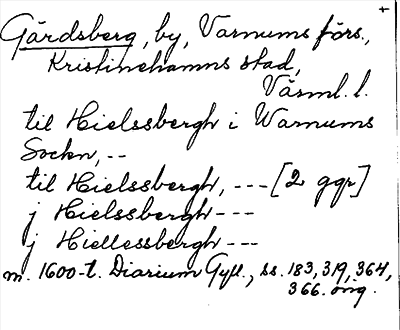 +
Gärdsberg, by, Varnums förs.,
Kristinehamns stad,
Värml. l.
til Hielssbergh i Warnums
Sockn, --
til Hielssbergh, --- [2 ggr]
j Hielssbergh ---
j Hiellessbergh ---
m. 1600-t. Diarium Gyll., ss. 183, 319, 364,
366. orig.